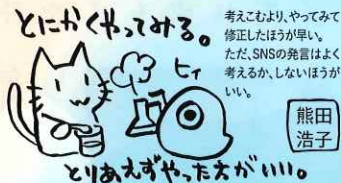 とにかくやってみる。
考えこむより、やってみて
修正したほうが早い。
ただ、SNSの発言はよく
考えるか、しないほうが
いい。
ヒィ
熊田
浩子
とりあえずやった方がいい。